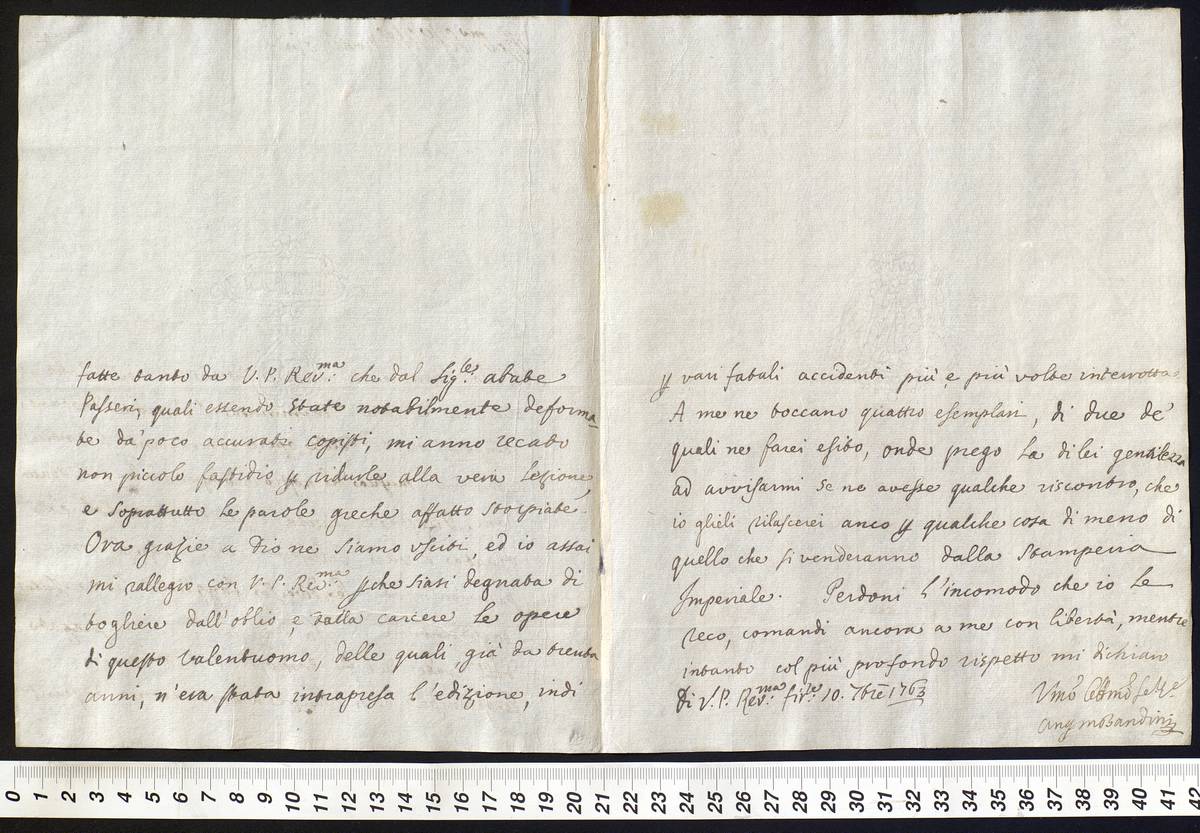 fatte tanto da V. P. Rev.ma che dal Sig.re abate
Passeri, quali essendo state notabilmente deforma
te da' poco accurati copisti, mi anno recato
non piccolo fastidio p ridurle alla vera lezione,
e soprattutto le parole greche affatto storpiate.
Ora grazie a Dio ne siamo usciti, ed io assai
mi rallegro con V. P. Rev.ma pche siasi degnata di
togliere dall'oblio, e dalla carcere le opere
di questo valentuomo, delle quali, già da trenta
anni, n'era stata intrapresa l'edizione, indi
p vari fatali accidenti più e più volte interrotta
A me ne toccano quattro esemplari, di due de'
quali ne farei esito, onde prego la di lei gentilezza
ad avvisarmi se ne avesse qualche riscontro, che
io glieli rilascerei anco p qualche cosa di meno di
quello che si venderanno dalla Stamperia
Imperiale. Perdoni l'incomodo che io le
reco, comandi ancora a me con libertà, mentre
intanto col più profondo rispetto mi dichiaro
Di V. P. Rev.ma Fir.ze 10. 7bre 1763
Ang m Bandini
0 1 2 3 4 5 6 7 8 9 10 11 12 13 14 15 16 17 18 19 20 21 22 23 24 25 26 27 28 29 30 31 32 33 34 35 36 37 38 39 40 41 42